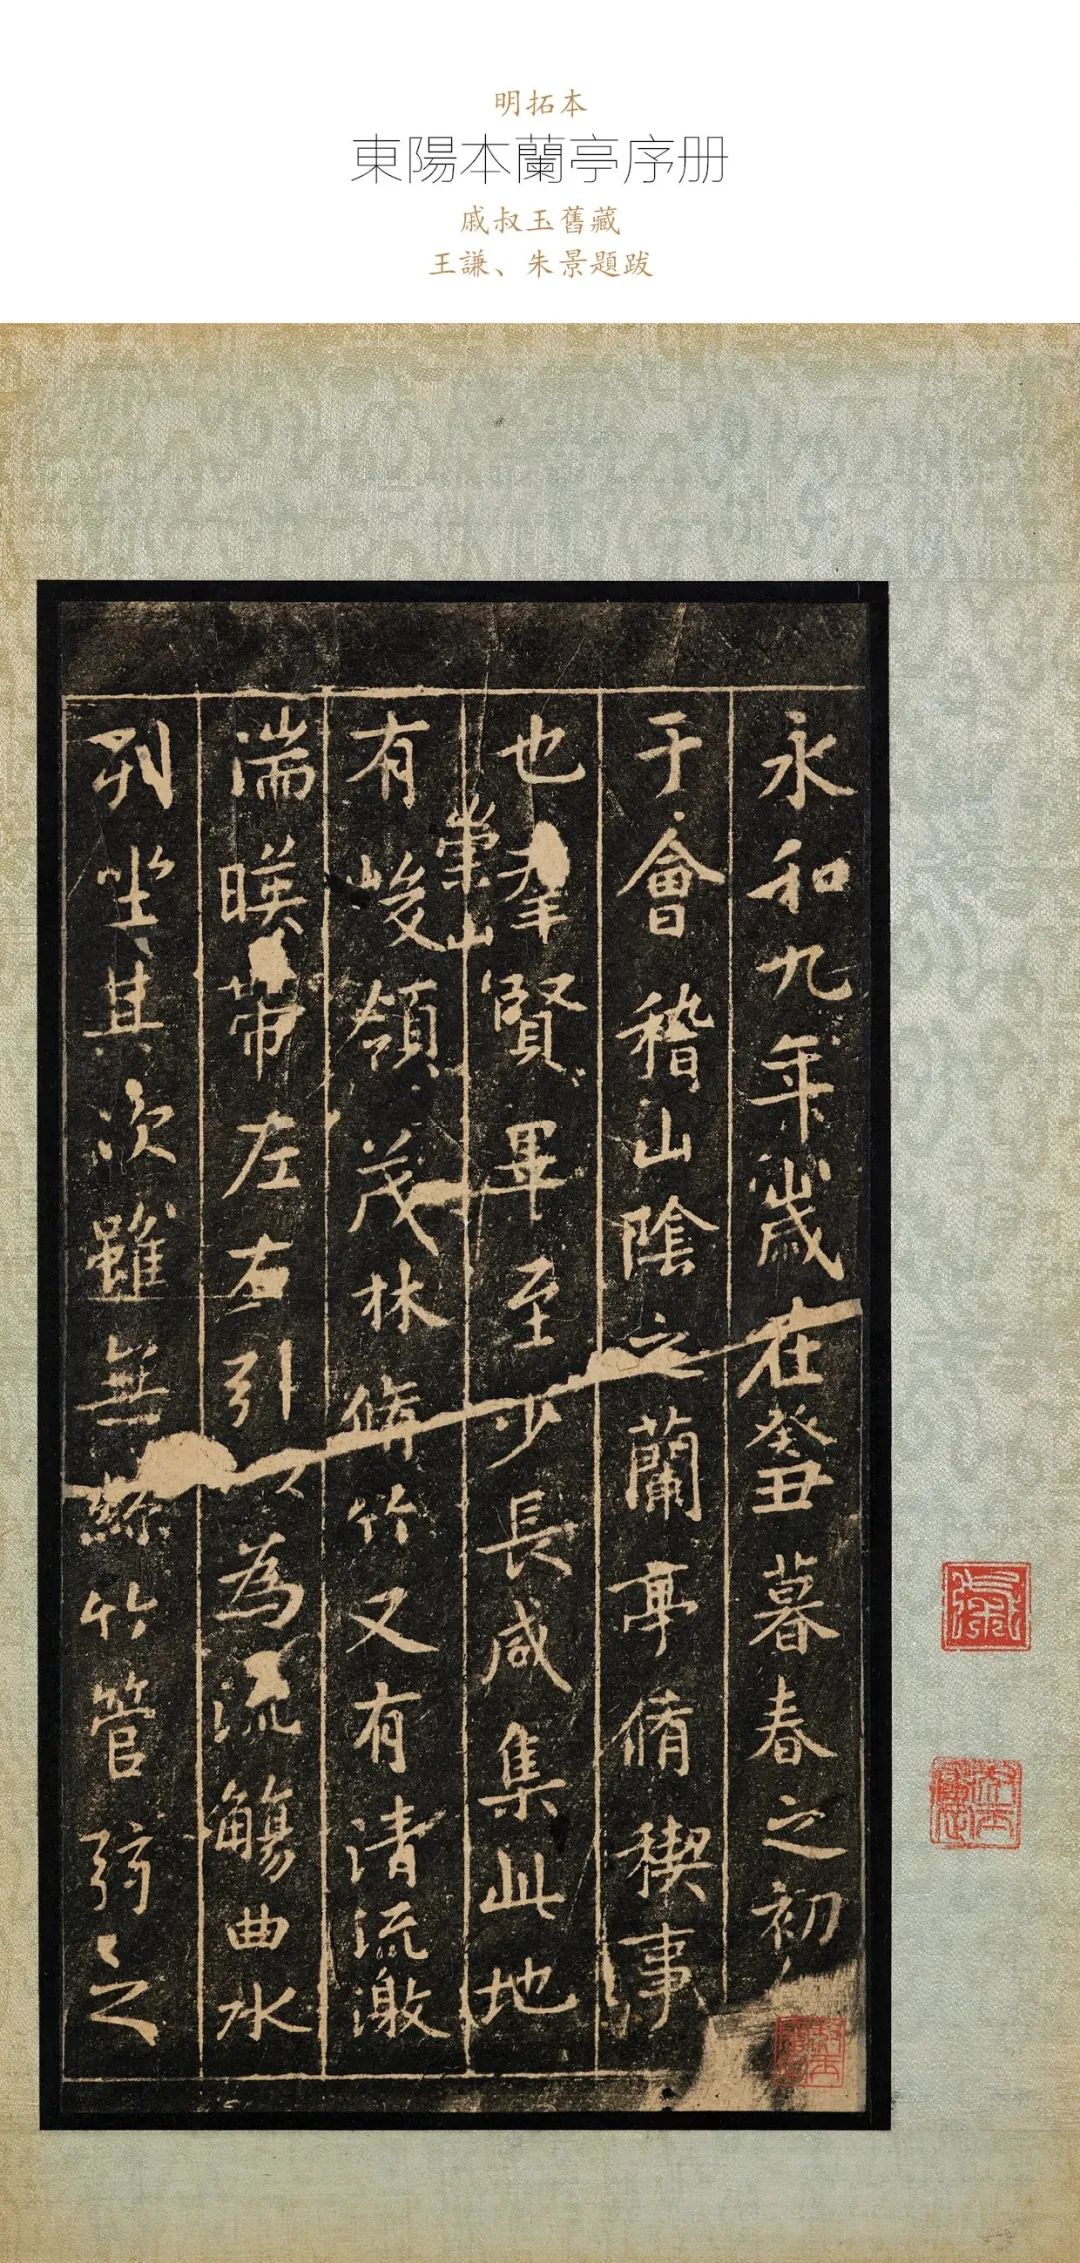 明拓本
東陽本蘭亭序册
戚叔玉舊藏
王謙、朱景題跋
永和九年歲在癸丑暮春之初
于會稽山陰之蘭亭脩稧事
也羣賢畢至少長咸集此地
崇山
有峻領茂林脩竹又有清流激
湍暎帶左右引以為流觴曲水
列坐其次雖無絲竹管弦之